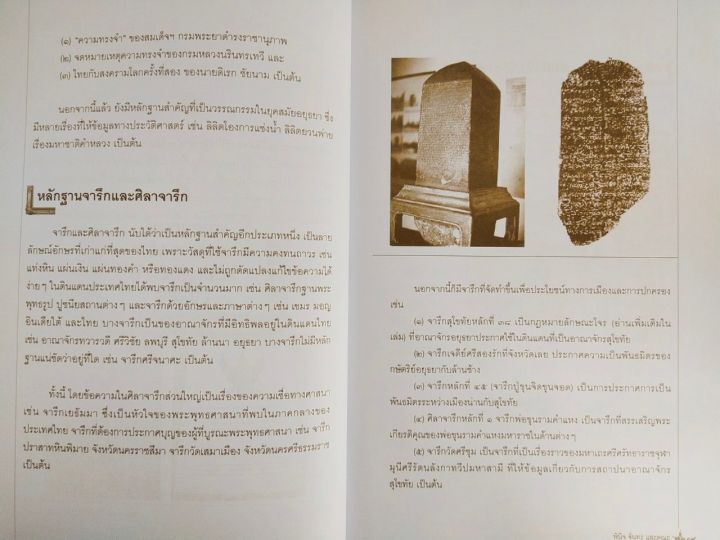 (๑) "ความทรงจำ" ของสมเด็จฯ กรมพระยาดำรงราชานุภาพ
(๒) จดหมายเหตุความทรงจำของกรมหลวงนรินทรเทวี และ
(๓) ไทยกับสงครามโลกครั้งที่สอง ของนายดิเรก ชัยนาม เป็นต้น
นอกจากนี้แล้ว ยังมีหลักฐานสำคัญที่เป็นวรรณกรรมในยุคสมัยอยุธยา ซึ่ง
มีหลายเรื่องที่ให้ข้อมูลทางประวัติศาสตร์ เช่น ลิลิตโองการแช่งน้ำ ลิลิตยวนพ่าย
เรื่องมหาชาติคำหลวง เป็นต้น
หลักฐานจารึกและศิลาจารึก
จารึกและศิลาจารึก นับได้ว่าเป็นหลักฐานสำคัญอีกประเภทหนึ่ง เป็นลาย
ลักษณ์อักษรที่เก่าแก่ที่สุดของไทย เพราะวัสดุที่ใช้จารึกมีความคงทนถาวร เช่น
แท่งหิน แผ่นเงิน แผ่นทองคำ หรือทองแดง และไม่ถูกดัดแปลงแก้ไขข้อความได้
ง่ายๆ ในดินแดนประเทศไทยได้พบจารึกเป็นจำนวนมาก เช่น ศิลาจารึกฐานพระ
พุทธรูป ปูชนียสถานต่างๆ และจารึกด้วยอักษรและภาษาต่างๆ เช่น เขมร มอญ
อินเดียใต้ และไทย บางจารึกเป็นของอาณาจักรที่มีอิทธิพลอยู่ในดินแดนไทย
เช่น อาณาจักรทวารวดี ศรีวิชัย ลพบุรี สุโขทัย ล้านนา อยุธยา บางจารึกไม่มีหลัก
ฐานแน่ชัดว่าอยู่ที่ใด เช่น จารึกศรีจนาศะ เป็นต้น
ทั้งนี้ โดยข้อความในศิลาจารึกส่วนใหญ่เป็นเรื่องของความเชื่อทางศาสนา
เช่น จารึกเยธัมมา ซึ่งเป็นหัวใจของพระพุทธศาสนาที่พบในภาคกลางของ
ประเทศไทย จารึกที่ต้องการประกาศบุญของผู้ที่บูรณะพระพุทธศาสนา เช่น จารึก
ปราสาทหินพิมาย จังหวัดนครราชสีมา จารึกวัดเสมาเมือง จังหวัดนครศรีธรรมราช
เป็นต้น
นอกจากนี้ก็มีจารึกที่จัดทำขึ้นเพื่อประโยชน์ทางการเมืองและการปกครอง
เช่น
(๑) จารึกสุโขทัยหลักที่ ๓๘ เป็นกฎหมายลักษณะโจร (อ่านเพิ่มเติมใน
เล่ม) ที่อาณาจักรอยุธยาประกาศใช้ในดินแดนที่เป็นอาณาจักรสุโขทัย
(๒) จารึกเจดีย์ศรีสองรักที่จังหวัดเลย ประกาศความเป็นพันธมิตรของ
กษัตริย์อยุธยากับล้านช้าง
(๓) จารึกหลักที่ ๔๕ (จารึกปู่ขุนจิดขุนจอด) เป็นการประกาศการเป็น
พันธมิตรระหว่างเมืองน่านกับสุโขทัย
(๔) ศิลาจารึกหลักที่ ๑ จารึกพ่อขุนรามคำแหง เป็นจารึกที่สรรเสริญพระ
เกียรติคุณของพ่อขุนรามคำแหงมหาราชในด้านต่างๆ
(๕) จารึกวัดศรีชุม เป็นจารึกที่เป็นเรื่องราวของมหาเถระศรีศรัทธาราชจุฬา
มุนีศรีรัตนลังกาทวีปมหาสามี ที่ให้ข้อมูลเกี่ยวกับการสถาปนาอาณาจักร
สุโขทัย เป็นต้น
พินิจ จันทร และคณะ